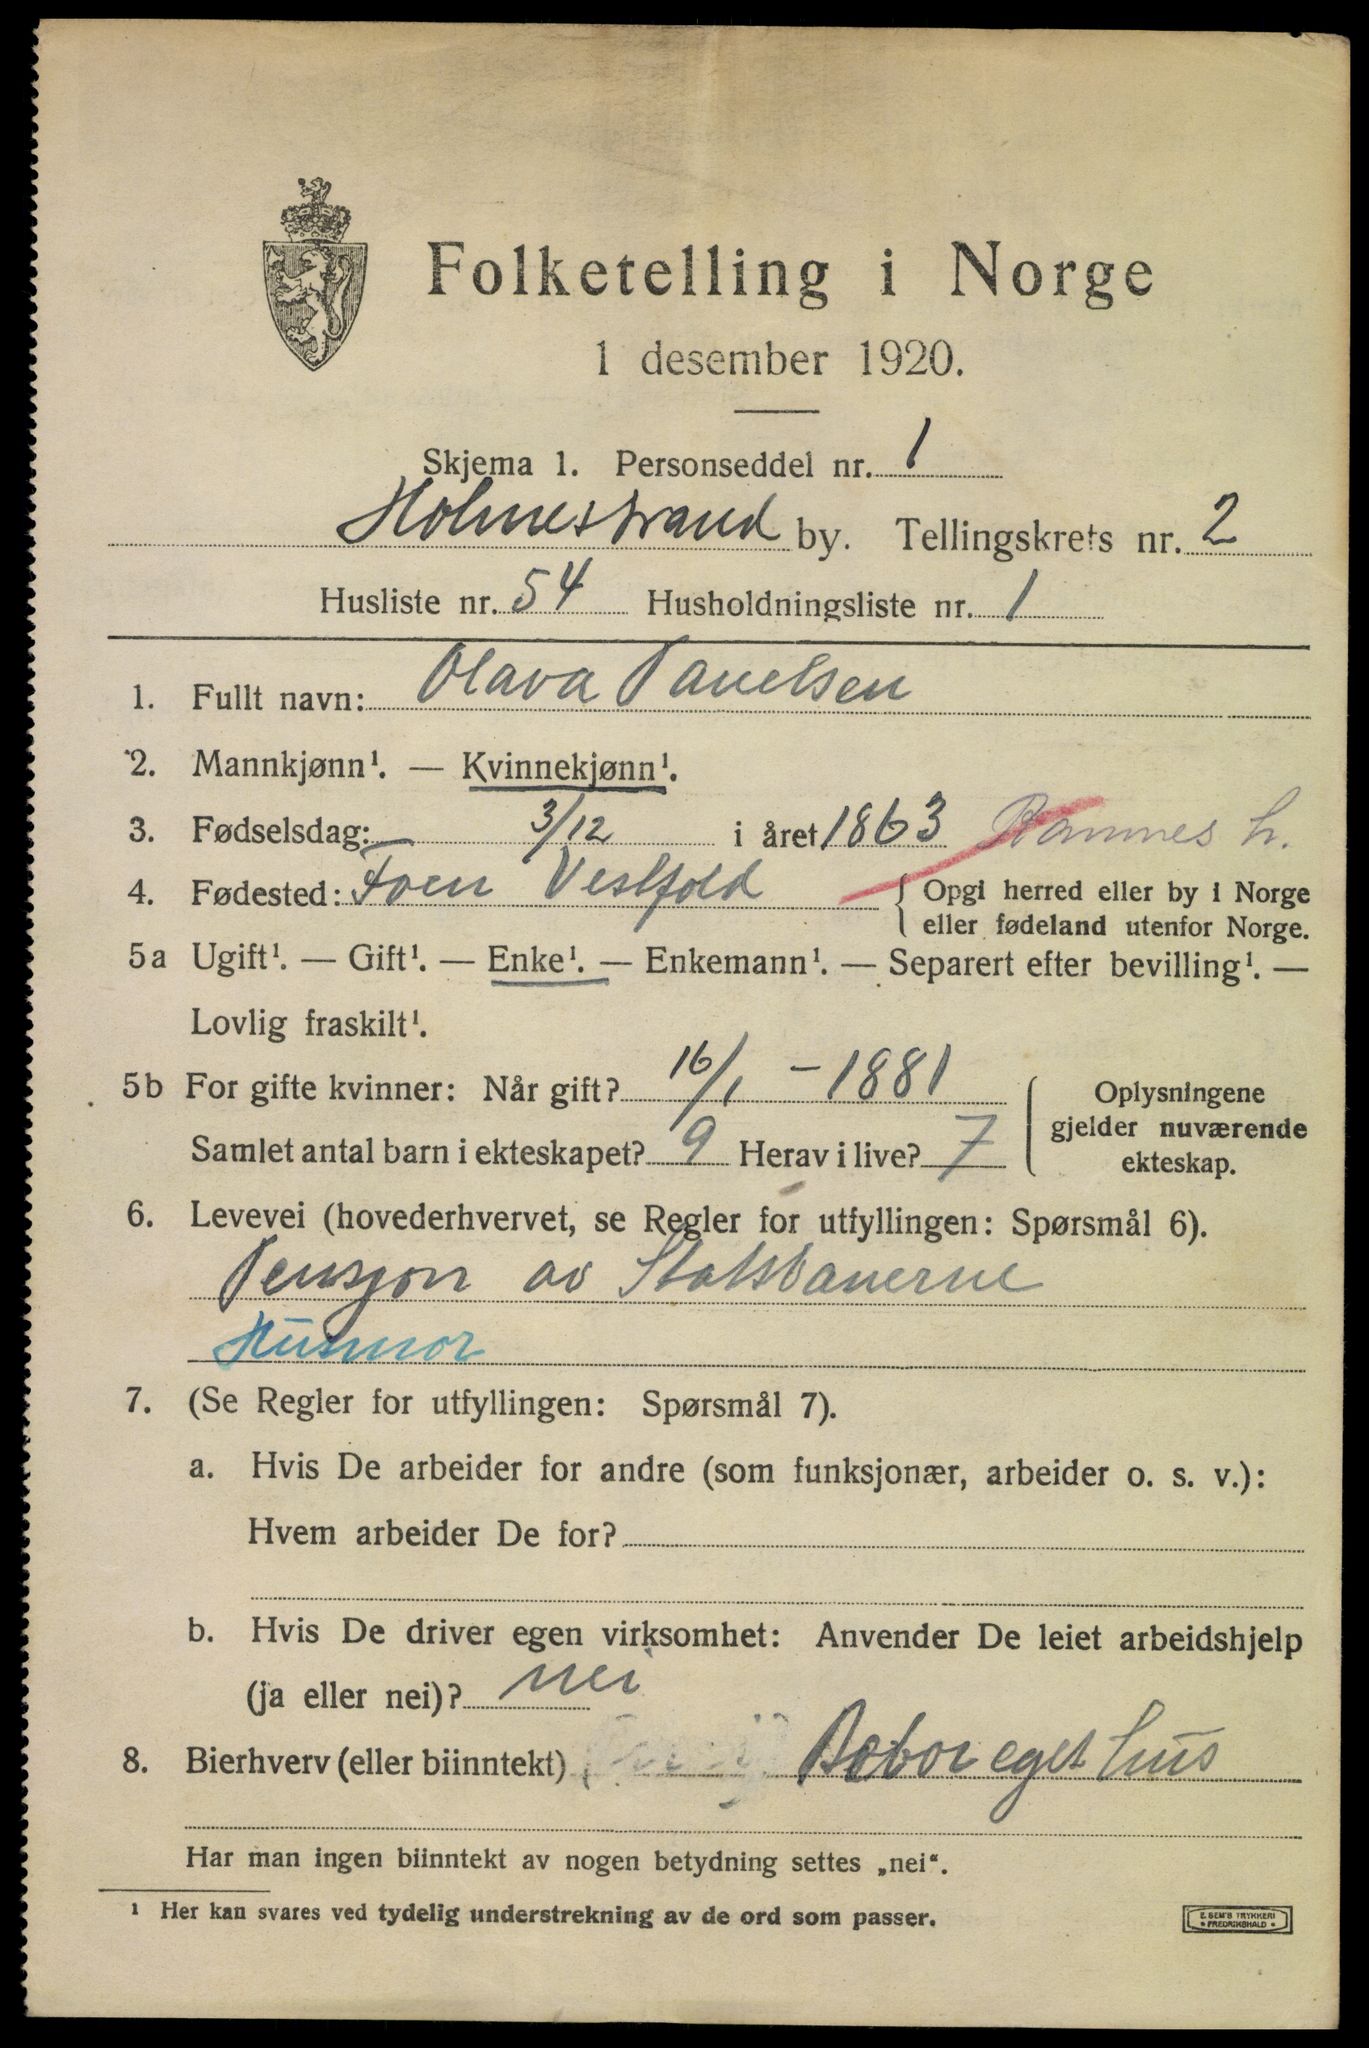 Folketelling i Norge
1 desember 1920.
Skjema 1. Personseddel nr. 1
Holmestrand by. Tellingskrets nr. 2
Husliste nr. 54 Husholdningsliste nr. 1
1. Fullt navn: Olava Paulsen
2. Mannkjønn¹. — Kvinnekjønn¹.
3. Fødselsdag: 3/12 i året 1863 Ramnes h.
4. Fødested: Foen Vestfold { Opgi herred eller by i Norge
eller fødeland utenfor Norge.
5a Ugift¹. — Gift¹. — Enke¹. — Enkemann¹. — Separert efter bevilling¹. —
Lovlig fraskilt¹.
5b For gifte kvinner: Når gift? 16/1 – 1881 Oplysningene
gjelder nuværende
ekteskap.
Samlet antal barn i ekteskapet? 9 Herav i live? 7
6. Levevei (hovederhvervet, se Regler for utfyllingen: Spørsmål 6).
Pensjon av Statsbanerne
Husmor
7. (Se Regler for utfyllingen: Spørsmål 7).
a. Hvis De arbeider for andre (som funksjonær, arbeider o. s. v.):
Hvem arbeider De for?
b. Hvis De driver egen virksomhet: Anvender De leiet arbeidshjelp
(ja eller nei)? nei
8. Bierhverv (eller biinntekt) Bebor eget hus
Har man ingen biinntekt av nogen betydning settes „nei“.
¹ Her kan svares ved tydelig understrekning av de ord som passer.
E. SEM'S TRYKKERI
• FREDRIKSHALD •